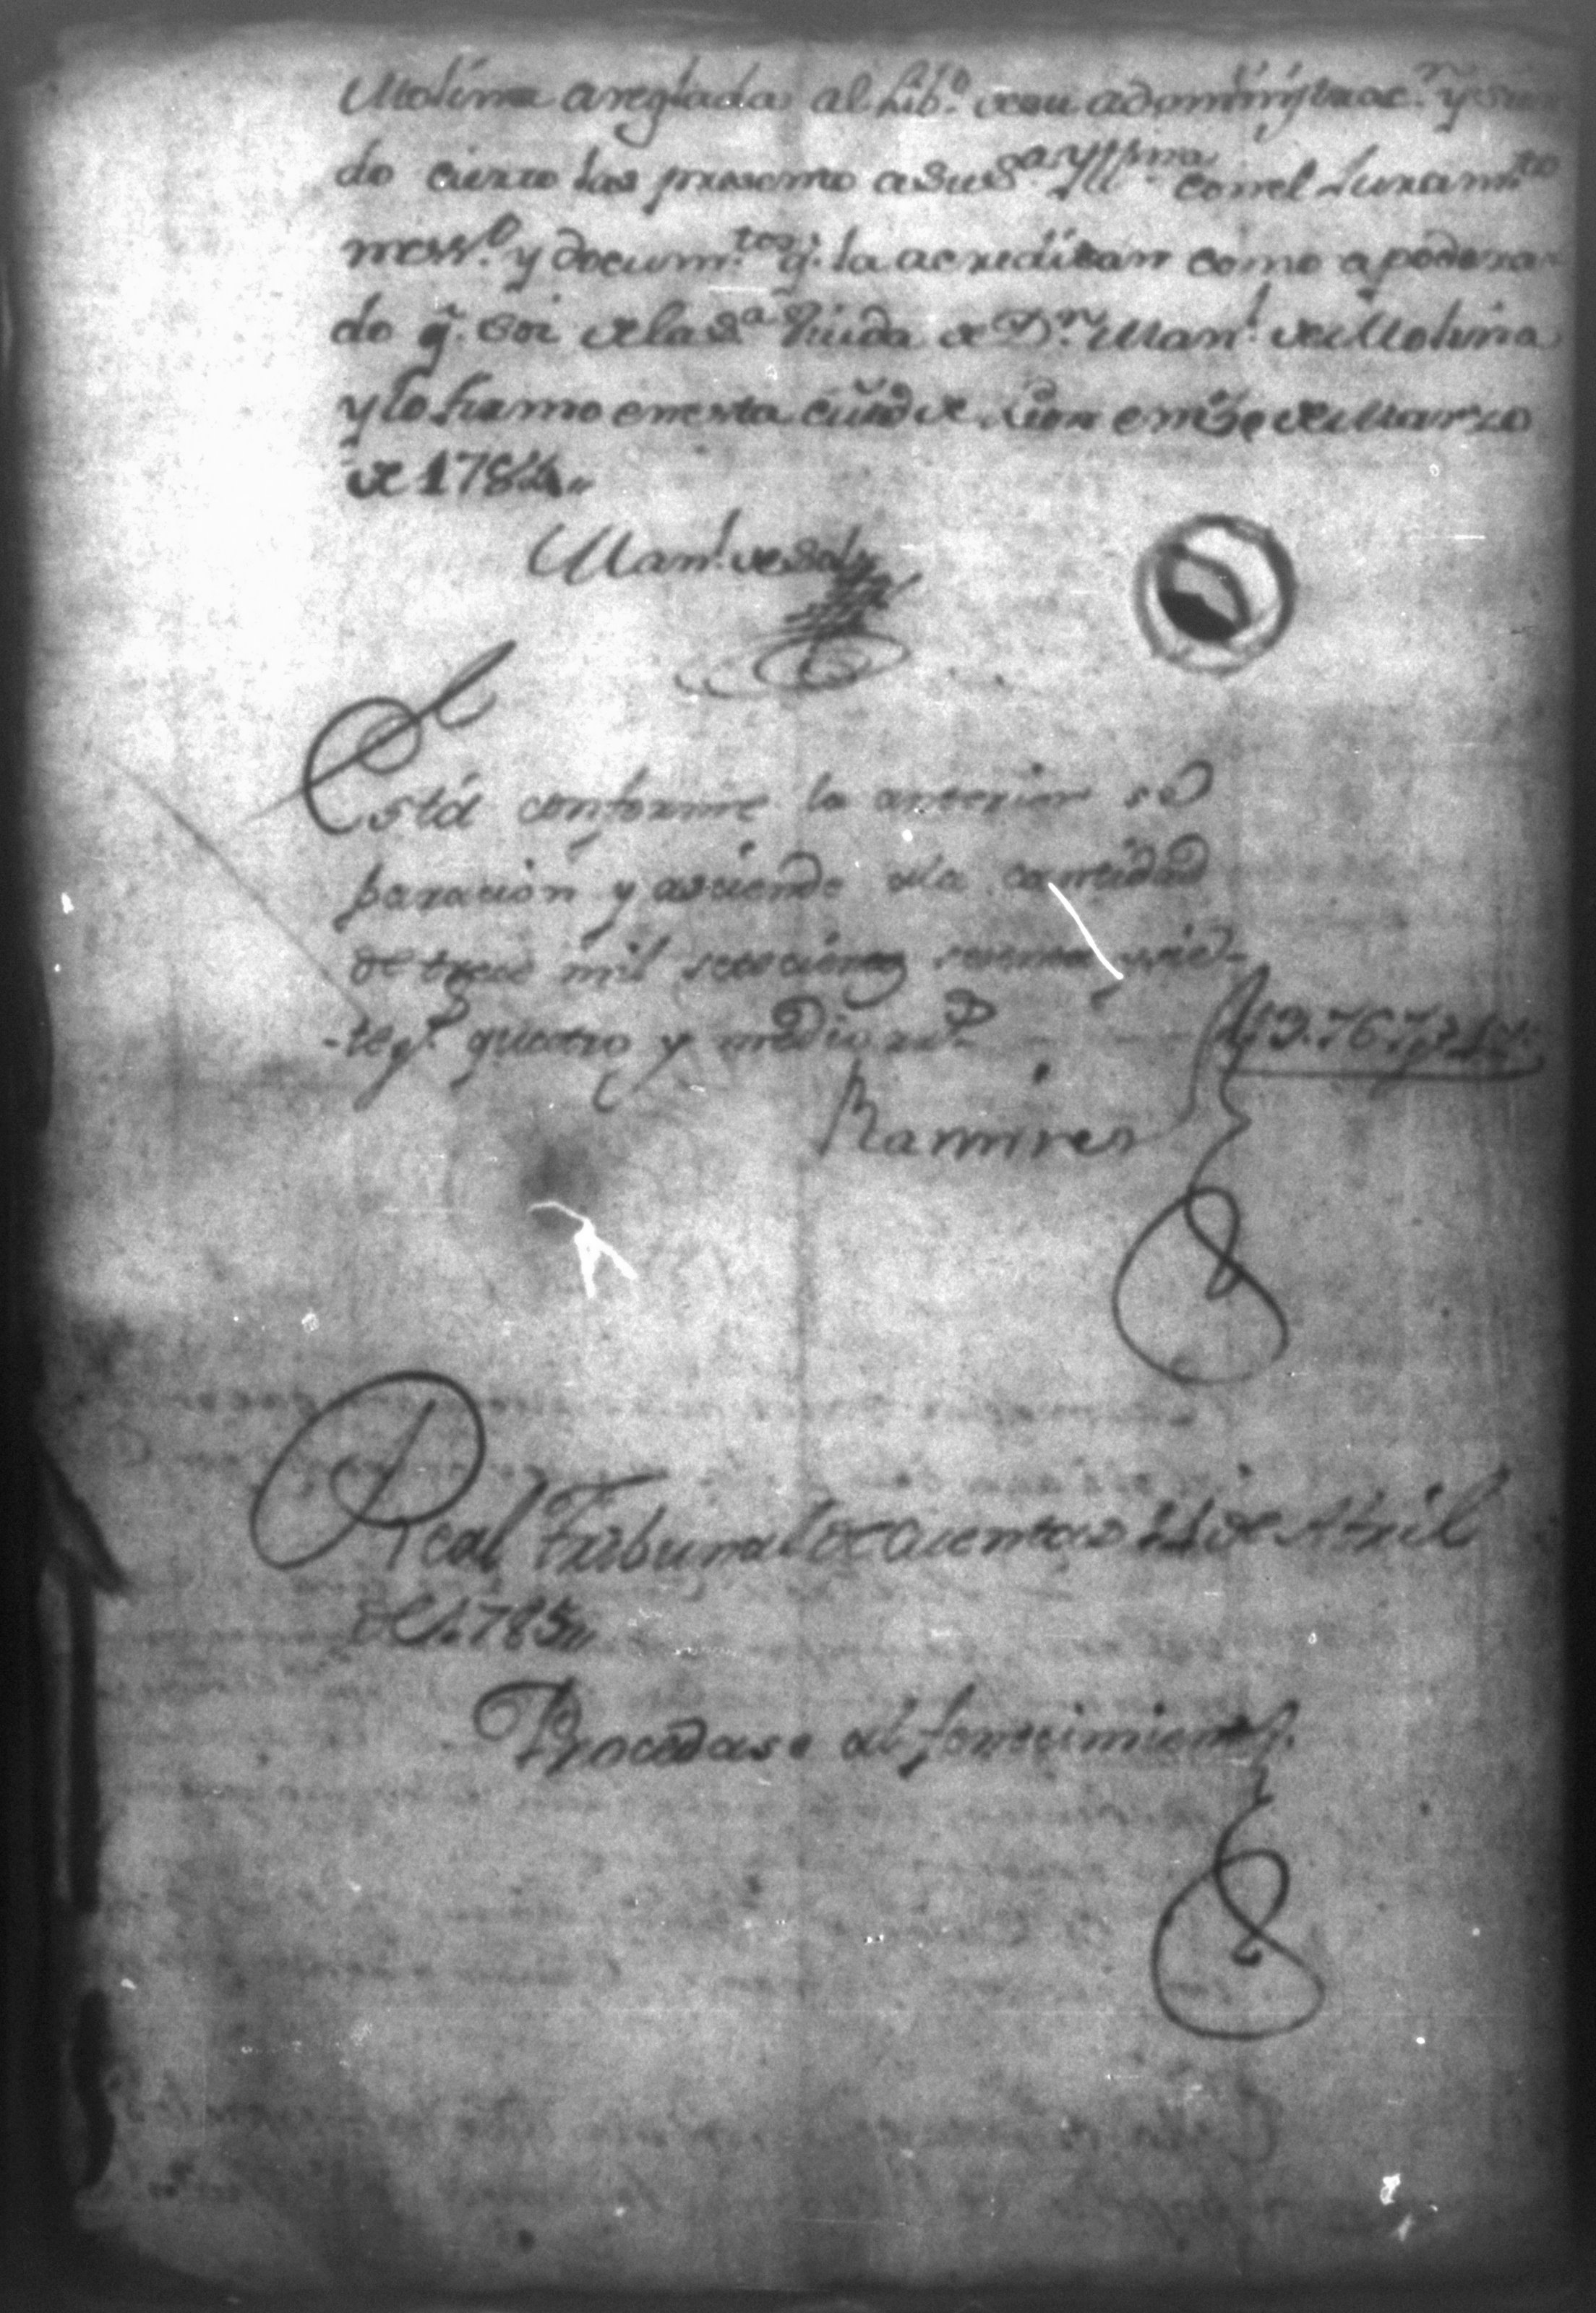 Molina arreglada al Lib.º de su administrac.n y sien
do cierto las presento a su S.a Yll.ma con el Juram.to
ness.º y docum.tos q.e la acreditan como apodera
do q.e soi de la S.a Viuda de D.n Man.l de Molina
y lo firmo en esta ciud de Leon en de Marzo
de 1784
Man.l de Solis
Está conforme la anterior se
paracion y asciende a la cantidad
de trece mil setecientos sesenta y sie-
-te p.s quatro y medio rr.s 13.767 p.s 4½
Ramires
Real Tribunal de Cuentas 21 de Abril
de 1785
Procedase al fenecimiento